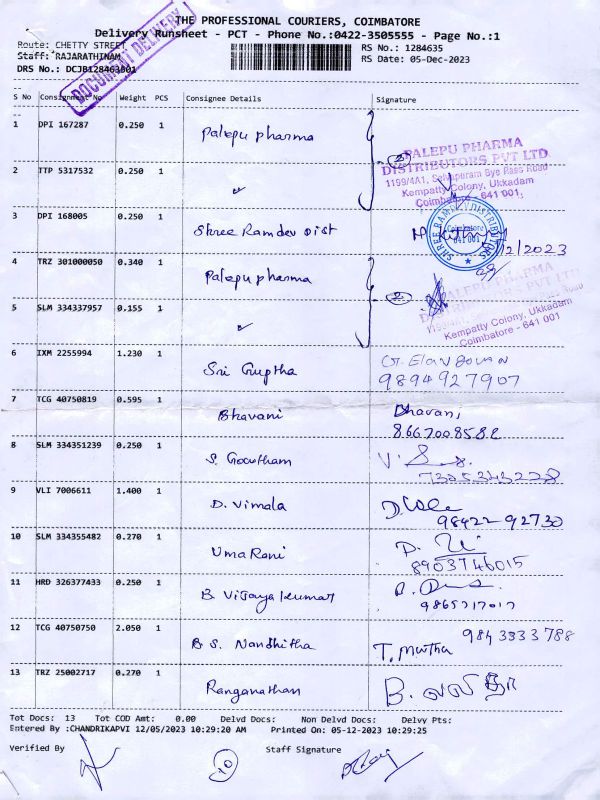 THE PROFESSIONAL COURIERS, COIMBATORE
Delivery Runsheet - PCT - Phone No.:0422-3505555 - Page No.:1
Route: CHETTY STREET
RS No.: 1284635
Staff: RAJARATHINAM
RS Date: 05-Dec-2023
DRS No.: DCJB128463501
DOCUMENT DELIVERY
S No Consignment No Weight PCS Consignee Details Signature
1 DPI 167287 0.250 1 Palepu pharma
PALEPU PHARMA
DISTRIBUTORS PVT LTD
1199/4A1, Selvapuram Bye Pass Road
Kempatty Colony, Ukkadam
Coimbatore - 641 001.
2 TTP 5317532 0.250 1 "
3 DPI 168005 0.250 1 Shree Ramdev Dist
Coimbatore
641 001
4 TRZ 301000050 0.340 1 Palepu pharma
2
PALEPU PHARMA
DISTRIBUTORS PVT LTD
Kempatty Colony, Ukkadam
Coimbatore - 641 001
5 SLM 334337957 0.155 1 "
6 IXM 2255994 1.230 1 Sri Guptha
9894927907
7 TCG 40750819 0.595 1 Bhavani Bhavani
8667008582
8 SLM 334351239 0.250 1 S. Goutham
9 VLI 7006611 1.400 1 D. Vimala
98422 92730
10 SLM 334355482 0.270 1 Uma Rani
8903746015
11 HRD 326377433 0.250 1 B. Vijaya Kumar
12 TCG 40750750 2.050 1 B S. Nandhitha
9843333788
13 TRZ 25002717 0.270 1 Ranganathan
Tot Docs: 13 Tot COD Amt: 0.00 Delvd Docs: Non Delvd Docs: Delvy Pts:
Entered By :CHANDRIKAPVI 12/05/2023 10:29:20 AM Printed On: 05-12-2023 10:29:25
Verified By Staff Signature
10